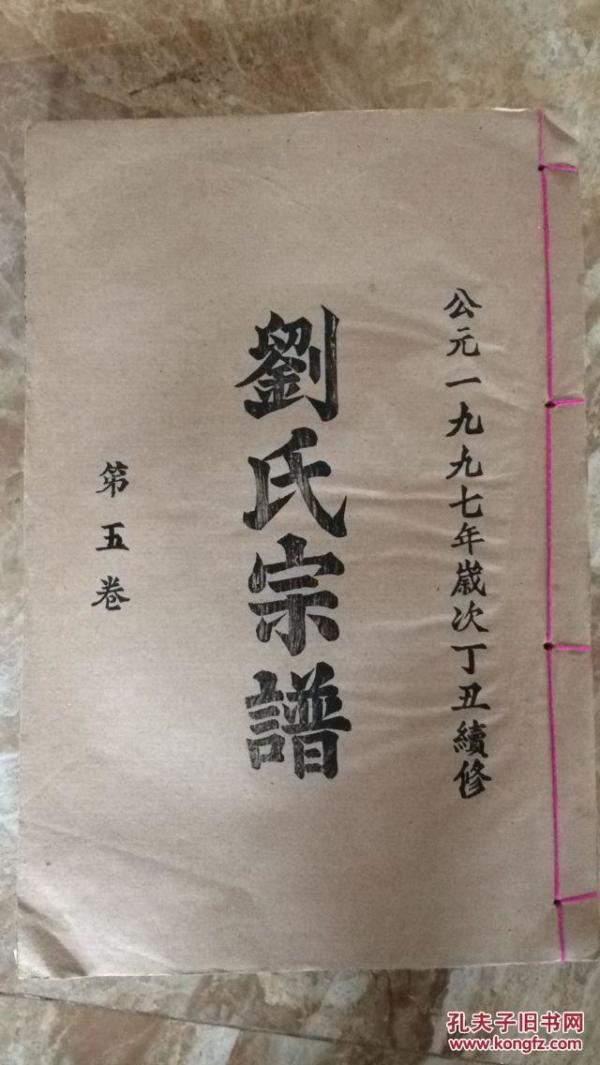 公元一九九七年歲次丁丑續修
劉氏宗譜
第五卷
孔夫子旧书网
www.kongfz.com